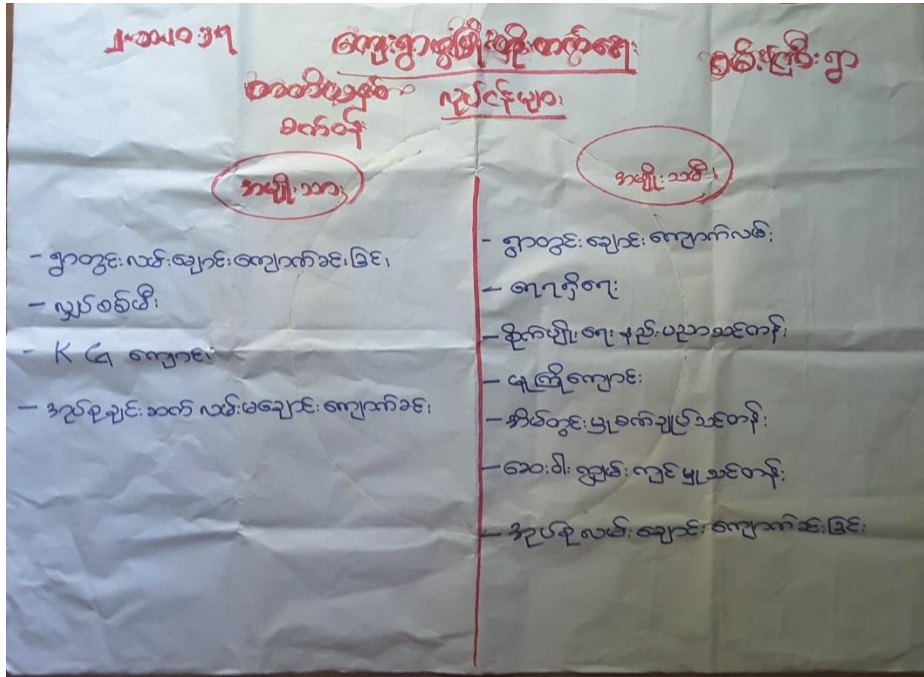 ကျေးရွာဖွံ့ဖြိုးတိုးတက်ရေး
စမ်းကြီးရွာ
တတိယနှစ်
လုပ်ငန်းများ
စက်ဝန်း
အမျိုးသား
- ရွာတွင်းလမ်းချောင်းကျောက်ခင်းခြင်း
- လျှပ်စစ်မီး
- KG ကျောင်း
- အုပ်စုချင်းဆက်လမ်းမချောင်းကျောက်ခင်း
အမျိုးသမီး
- ရွာတွင်းချောင်းကျောက်လမ်း
- ရေရရှိရေး
- စိုက်ပျိုးရေးနည်းပညာသင်တန်း
- မူကြိုကျောင်း
- အိမ်တွင်းမှုစက်ချုပ်သင်တန်း
- ဆေးဝါးကျွမ်းကျင်မှုသင်တန်း
- အုပ်စုလမ်းချောင်းကျောက်ခင်းခြင်း